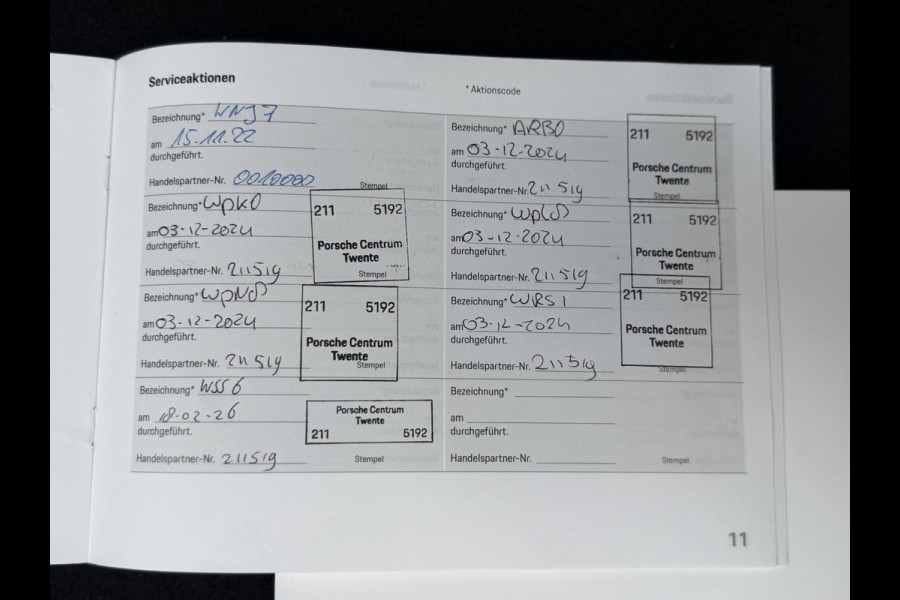 Serviceaktionen
* Aktionscode
Bezeichnung* WNJ7
am 15.11.22
durchgeführt.
Handelspartner-Nr. 0010000
Stempel
Bezeichnung* WPK0
am 03-12-2024
durchgeführt.
Handelspartner-Nr. 211519
211 5192
Porsche Centrum
Twente
Stempel
Bezeichnung* WPN8
am 03-12-2024
durchgeführt.
Handelspartner-Nr. 211519
211 5192
Porsche Centrum
Twente
Stempel
Bezeichnung* WSS6
am 18-02-26
durchgeführt.
Handelspartner-Nr. 211519
Porsche Centrum
Twente
211 5192
Stempel
Bezeichnung* ARB0
am 03-12-2024
durchgeführt.
Handelspartner-Nr. 211519
211 5192
Porsche Centrum
Twente
Stempel
Bezeichnung*
am 03-12-2024
durchgeführt.
Handelspartner-Nr. 211519
211 5192
Porsche Centrum
Twente
Stempel
Bezeichnung* WRS1
am 03-12-2024
durchgeführt.
Handelspartner-Nr. 211519
211 5192
Porsche Centrum
Twente
Stempel
Bezeichnung*
am
durchgeführt.
Handelspartner-Nr.
Stempel
11